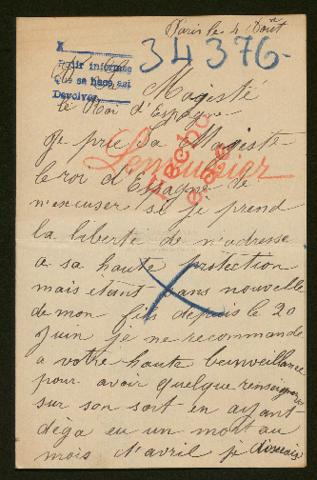 Paris le 4 Aout
34376
X
Pedir informes
Que se hace así
Devolver
Magisté
le Roi d'Espagne
Je prie Sa Magiste
Lemercier
le roi d'Espagne de
n'encuser si je prend
la liberté de n'adresse
a sa haute protection
mais étant sans nouvelle
de mon fils depuis le 20
juin je ne recommande
a votre haute bienveillance
pour avoir quelque renseignem
sur son sort en ayant
dega eu un mort au
mois d'avril je